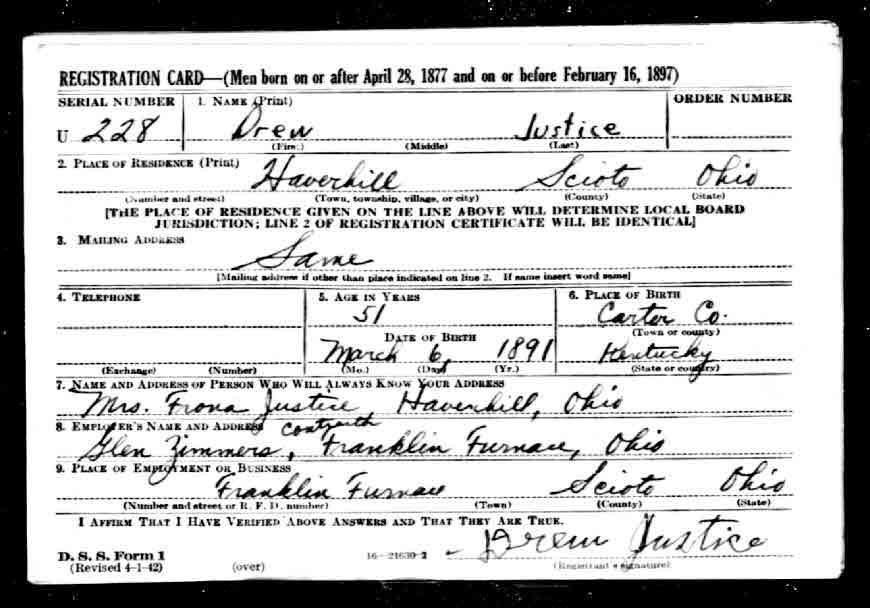 REGISTRATION CARD—(Men born on or after April 28, 1877 and on or before February 16, 1897)
SERIAL NUMBER 1. NAME (Print) ORDER NUMBER
U 228 Drew Justice
(First) (Middle) (Last)
2. PLACE OF RESIDENCE (Print)
Haverhill Scioto Ohio
(Number and street) (Town, township, village, or city) (County) (State)
[THE PLACE OF RESIDENCE GIVEN ON THE LINE ABOVE WILL DETERMINE LOCAL BOARD
JURISDICTION; LINE 2 OF REGISTRATION CERTIFICATE WILL BE IDENTICAL]
3. MAILING ADDRESS
Same
[Mailing address if other than place indicated on line 2. If same insert word same]
4. TELEPHONE 5. AGE IN YEARS 6. PLACE OF BIRTH
51 Carter Co.
(Town or county)
DATE OF BIRTH
March 6, 1891 Kentucky
(Exchange) (Number) (Mo.) (Day) (Yr.) (State or country)
7. NAME AND ADDRESS OF PERSON WHO WILL ALWAYS KNOW YOUR ADDRESS
Mrs. Frona Justice Haverhill, Ohio
8. EMPLOYER'S NAME AND ADDRESS
Glen Zimmers, Franklin Furnace, Ohio
9. PLACE OF EMPLOYMENT OR BUSINESS
Franklin Furnace Scioto Ohio
(Number and street or R. F. D. number) (Town) (County) (State)
I AFFIRM THAT I HAVE VERIFIED ABOVE ANSWERS AND THAT THEY ARE TRUE.
Drew Justice
D. S. S. Form 1 16—21630-2
(Revised 4-1-42) (over) (Registrant's signature)